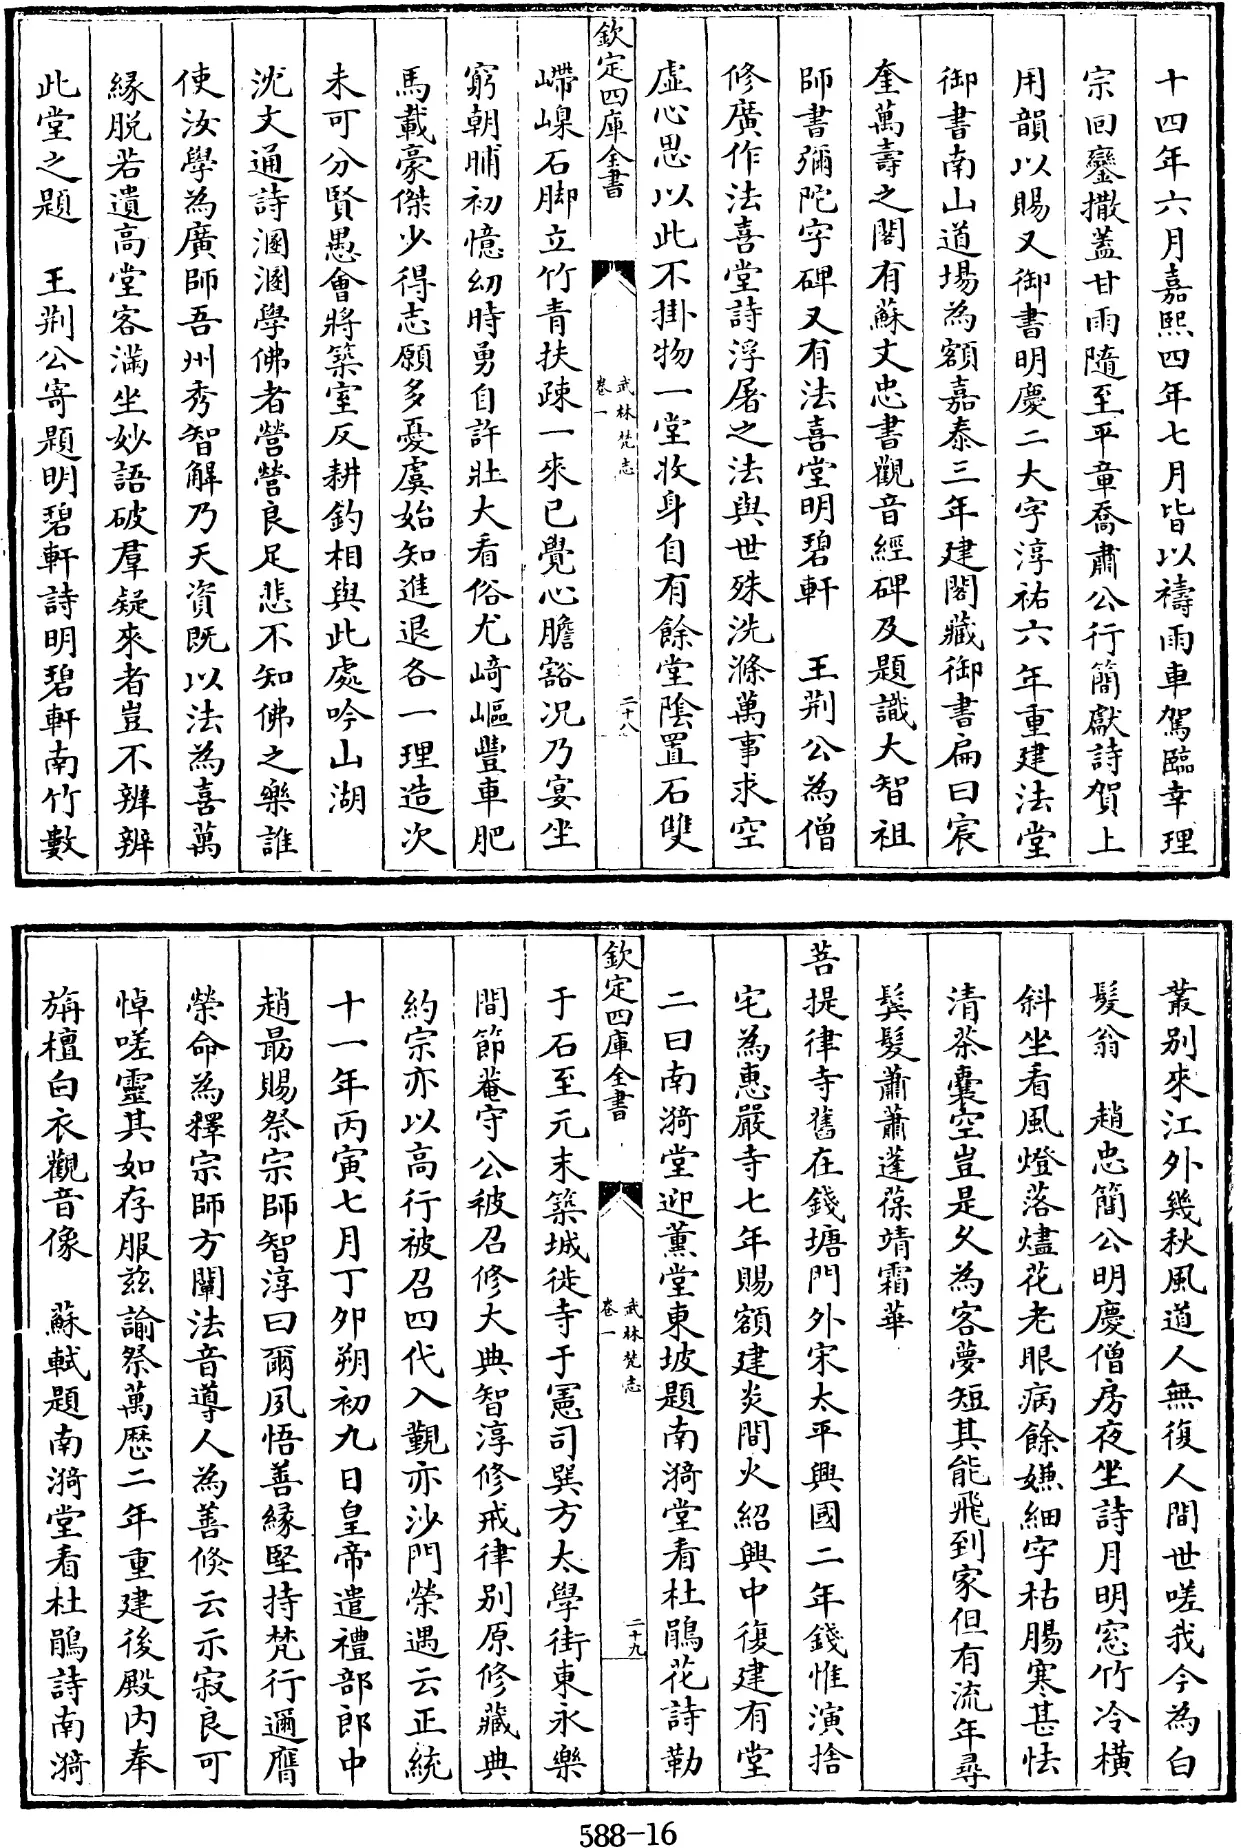 十四年六月嘉熙四年七月皆以禱雨車駕臨幸理
宗回鑾撒蓋甘雨隨至平章喬肅公行簡獻詩賀上
用韻以賜又御書明慶二大字淳祐六年重建法堂
御書南山道場為額嘉泰三年建閣藏御書扁曰宸
奎萬壽之閣有蘇文忠書觀音經碑及題識大智祖
師書彌陀字碑又有法喜堂明碧軒 王荆公為僧
修廣作法喜堂詩浮屠之法與世殊洗滌萬事求空
虛心思以此不掛物一堂收身自有餘堂陰置石雙
欽定四庫全書 武林梵志 卷一 二十八
嵽嵲石脚立竹青扶疎一來已覺心膽豁况乃宴坐
窮朝晡初憶幼時勇自許壯大看俗尤﨑嶇豐車肥
馬載豪傑少得志願多憂虞始知進退各一理造次
未可分賢愚會將築室反耕釣相與此處吟山湖
沈文通詩溷溷學佛者營營良足悲不知佛之樂誰
使汝學為廣師吾州秀智解乃天資既以法為喜萬
緣脱若遺高堂客滿坐妙語破羣疑來者豈不辨辨
此堂之題 王荆公寄題明碧軒詩明碧軒南竹數
叢别來江外幾秋風道人無復人間世嗟我今為白
髮翁 趙忠簡公明慶僧房夜坐詩月明窓竹冷橫
斜坐看風燈落燼花老眼病餘嫌細字枯腸寒甚怯
清茶囊空豈是久為客夢短其能飛到家但有流年尋
鬂髮蕭蕭蓬葆靖霜華
菩提律寺舊在錢塘門外宋太平興國二年錢惟演捨
宅為惠嚴寺七年賜額建炎間火紹興中復建有堂
二曰南漪堂迎薰堂東坡題南漪堂看杜鵑花詩勒
欽定四庫全書 武林梵志 卷一 二十九
于石至元末築城徙寺于憲司巽方太學街東永樂
間節菴守公被召修大典智淳修戒律别原修藏典
約宗亦以高行被召四代入覲亦沙門榮遇云正統
十一年丙寅七月丁卯朔初九日皇帝遣禮部郎中
趙最賜祭宗師智淳曰爾夙悟善緣堅持梵行邇膺
榮命為釋宗師方闡法音導人為善倐云示寂良可
悼嗟靈其如存服兹諭祭萬歴二年重建後殿内奉
旃檀白衣觀音像 蘇軾題南漪堂看杜鵑詩南漪
588-16